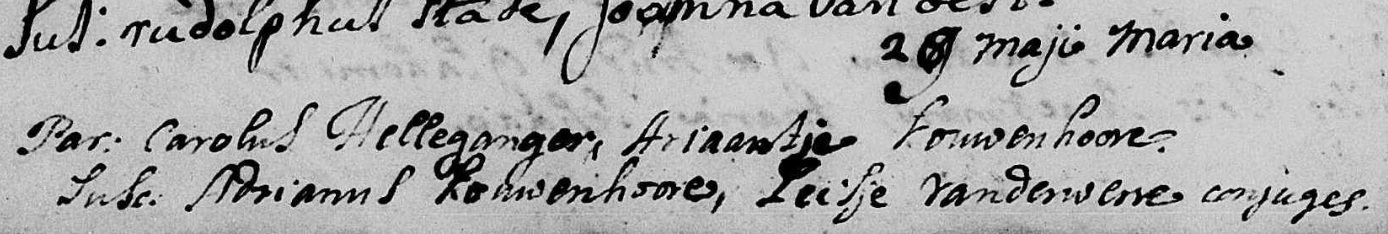 Sus: rudolphus Stade, Joanna van
29 Maji Maria
Par: Carolus Helleganger, Ariaantje Kouwenhoove.
Susc. Adrianus Kouwenhoove, Leitje vanderwerve conjuges.